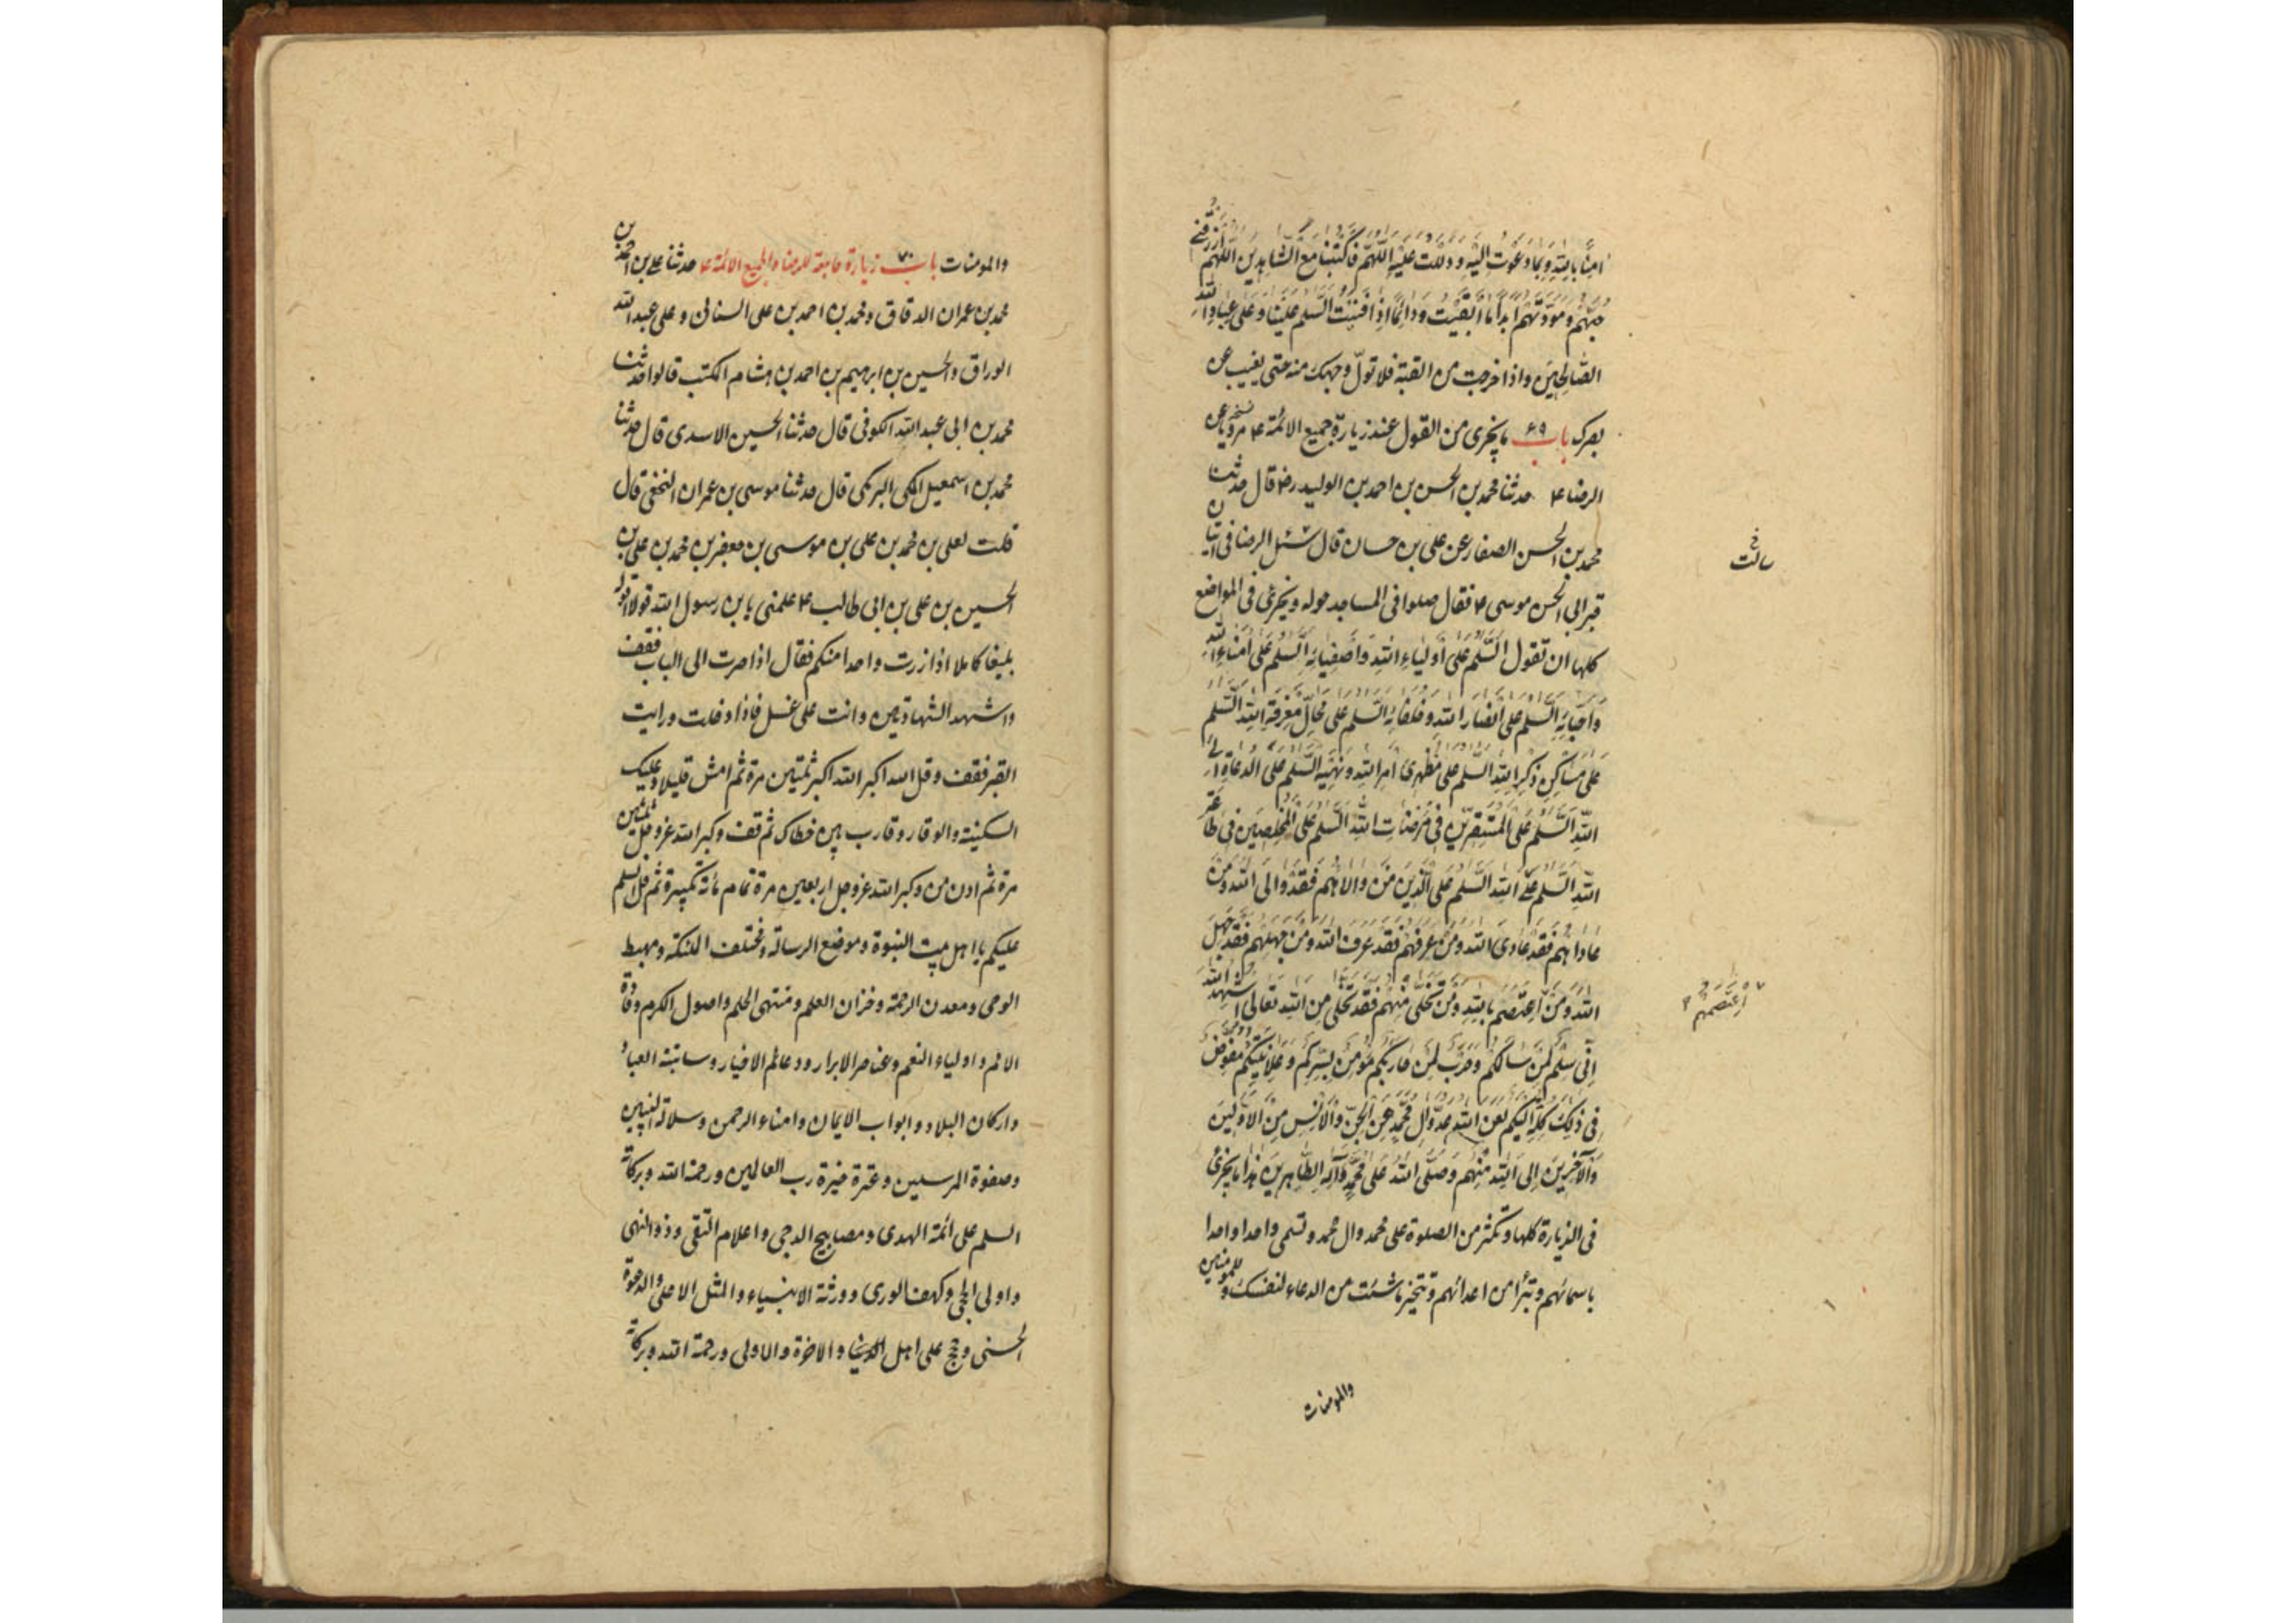 امنا بالله وبما دعوت اليه ودللت عليه اللهم فاكتبنا مع الشاهدين اللهم ارزقني
حبهم ومودتهم ابدا ما ابقيت ودائما اذا افنيت السلم علينا وعلى عباد الله
الصالحين واذا خرجت من القبة فلا تول وجهك منه حتى يغيب عن
بصرك باب ۶۹ ما يجزى من القول عند زيارة جميع الائمة ع عن
الرضا ع حدثنا محمد بن الحسن بن احمد بن الوليد رض قال حدثنا
محمد بن الحسن الصفار عن على بن حسان قال سئل الرضا فى اتيان
قبر ابى الحسن موسى ع فقال صلوا فى المساجد حوله ويجزى فى المواضع
كلها ان تقول السلم على اولياء الله واصفيائه السلم على امناء الله
واحبائه السلم على انصار الله وخلفائه السلم على محال معرفة الله السلم
على مساكن ذكر الله السلم على مظهرى امر الله ونهيه السلم على الدعاة الى
الله السلم على المستقرين فى مرضات الله السلم على المخلصين فى طاعة
الله السلم على الله السلم على الذين من والاهم فقد والى الله ومن
عاداهم فقد عادى الله ومن عرفهم فقد عرف الله ومن جهلهم فقد جهل
الله ومن اعتصم بالله ومن تخلى منهم فقد تخلى من الله تعالى اشهد الله
انى سلم لمن سالكم وحرب لمن حاربكم مؤمن بسركم وعلانيتكم مفوض
فى ذلك كله اليكم لعن الله عدو ال محمد من الجن والانس من الاولين
والآخرين الى الله منهم وصلى الله على محمد وآله الطاهرين هذا ما يجزى
فى الزيارة كلها وتكثر من الصلوة على محمد وال محمد وتسمى واحدا واحدا
باسمائهم وتبرأ من اعدائهم وتتخير ما شئت من الدعاء لنفسك وللمؤمنين
والمومنات
اعتصم بهم
والمومنات باب ۷۰ زيارة جامعة للرضا ولجميع الائمة ع حدثنا على بن احمد بن
محمد بن عمران الدقاق ومحمد بن احمد بن على السنانى وعلى عبد الله
الوراق والحسين بن ابرهيم بن احمد بن هشام المكتب قالوا حدثنا
محمد بن ابى عبد الله الكوفى قال حدثنا الحسين الاسدى قال حدثنا
محمد بن اسمعيل المكى البرمكى قال حدثنا موسى بن عمران النخعى قال
قلت لعلى بن محمد بن على بن موسى بن جعفر بن محمد بن على بن
الحسين بن على بن ابى طالب ع علمنى يا بن رسول الله قولا اقوله
بليغا كاملا اذا زرت واحدا منكم فقال اذا صرت الى الباب فقف
واشهد الشهادتين وانت على غسل فاذا دخلت ورايت
القبر فقف وقل الله اكبر الله اكبر ثلثين مرة ثم امش قليلا وعليك
السكينة والوقار وقارب بين خطاك ثم قف وكبر الله عزوجل ثلثين
مرة ثم ادن من وكبر الله عزوجل اربعين مرة تمام مائة تكبيرة ثم قل السلم
عليكم يا اهل بيت النبوة وموضع الرسالة ومختلف الملئكة ومهبط
الوحى ومعدن الرحمة وخزان العلم ومنتهى الحلم واصول الكرم وقادة
الامم واولياء النعم وعناصر الابرار ودعائم الاخيار وساسة العباد
واركان البلاد وابواب الايمان وامناء الرحمن وسلالة النبيين
وصفوة المرسلين وعترة خيرة رب العالمين ورحمة الله وبركاته
السلم على ائمة الهدى ومصابيح الدجى واعلام التقى وذو النهى
واولى الحجى وكهف الورى وورثة الانبياء والمثل الاعلى والدعوة
الحسنى وحجج على اهل الدنيا والاخرة والاولى ورحمة الله وبركاته